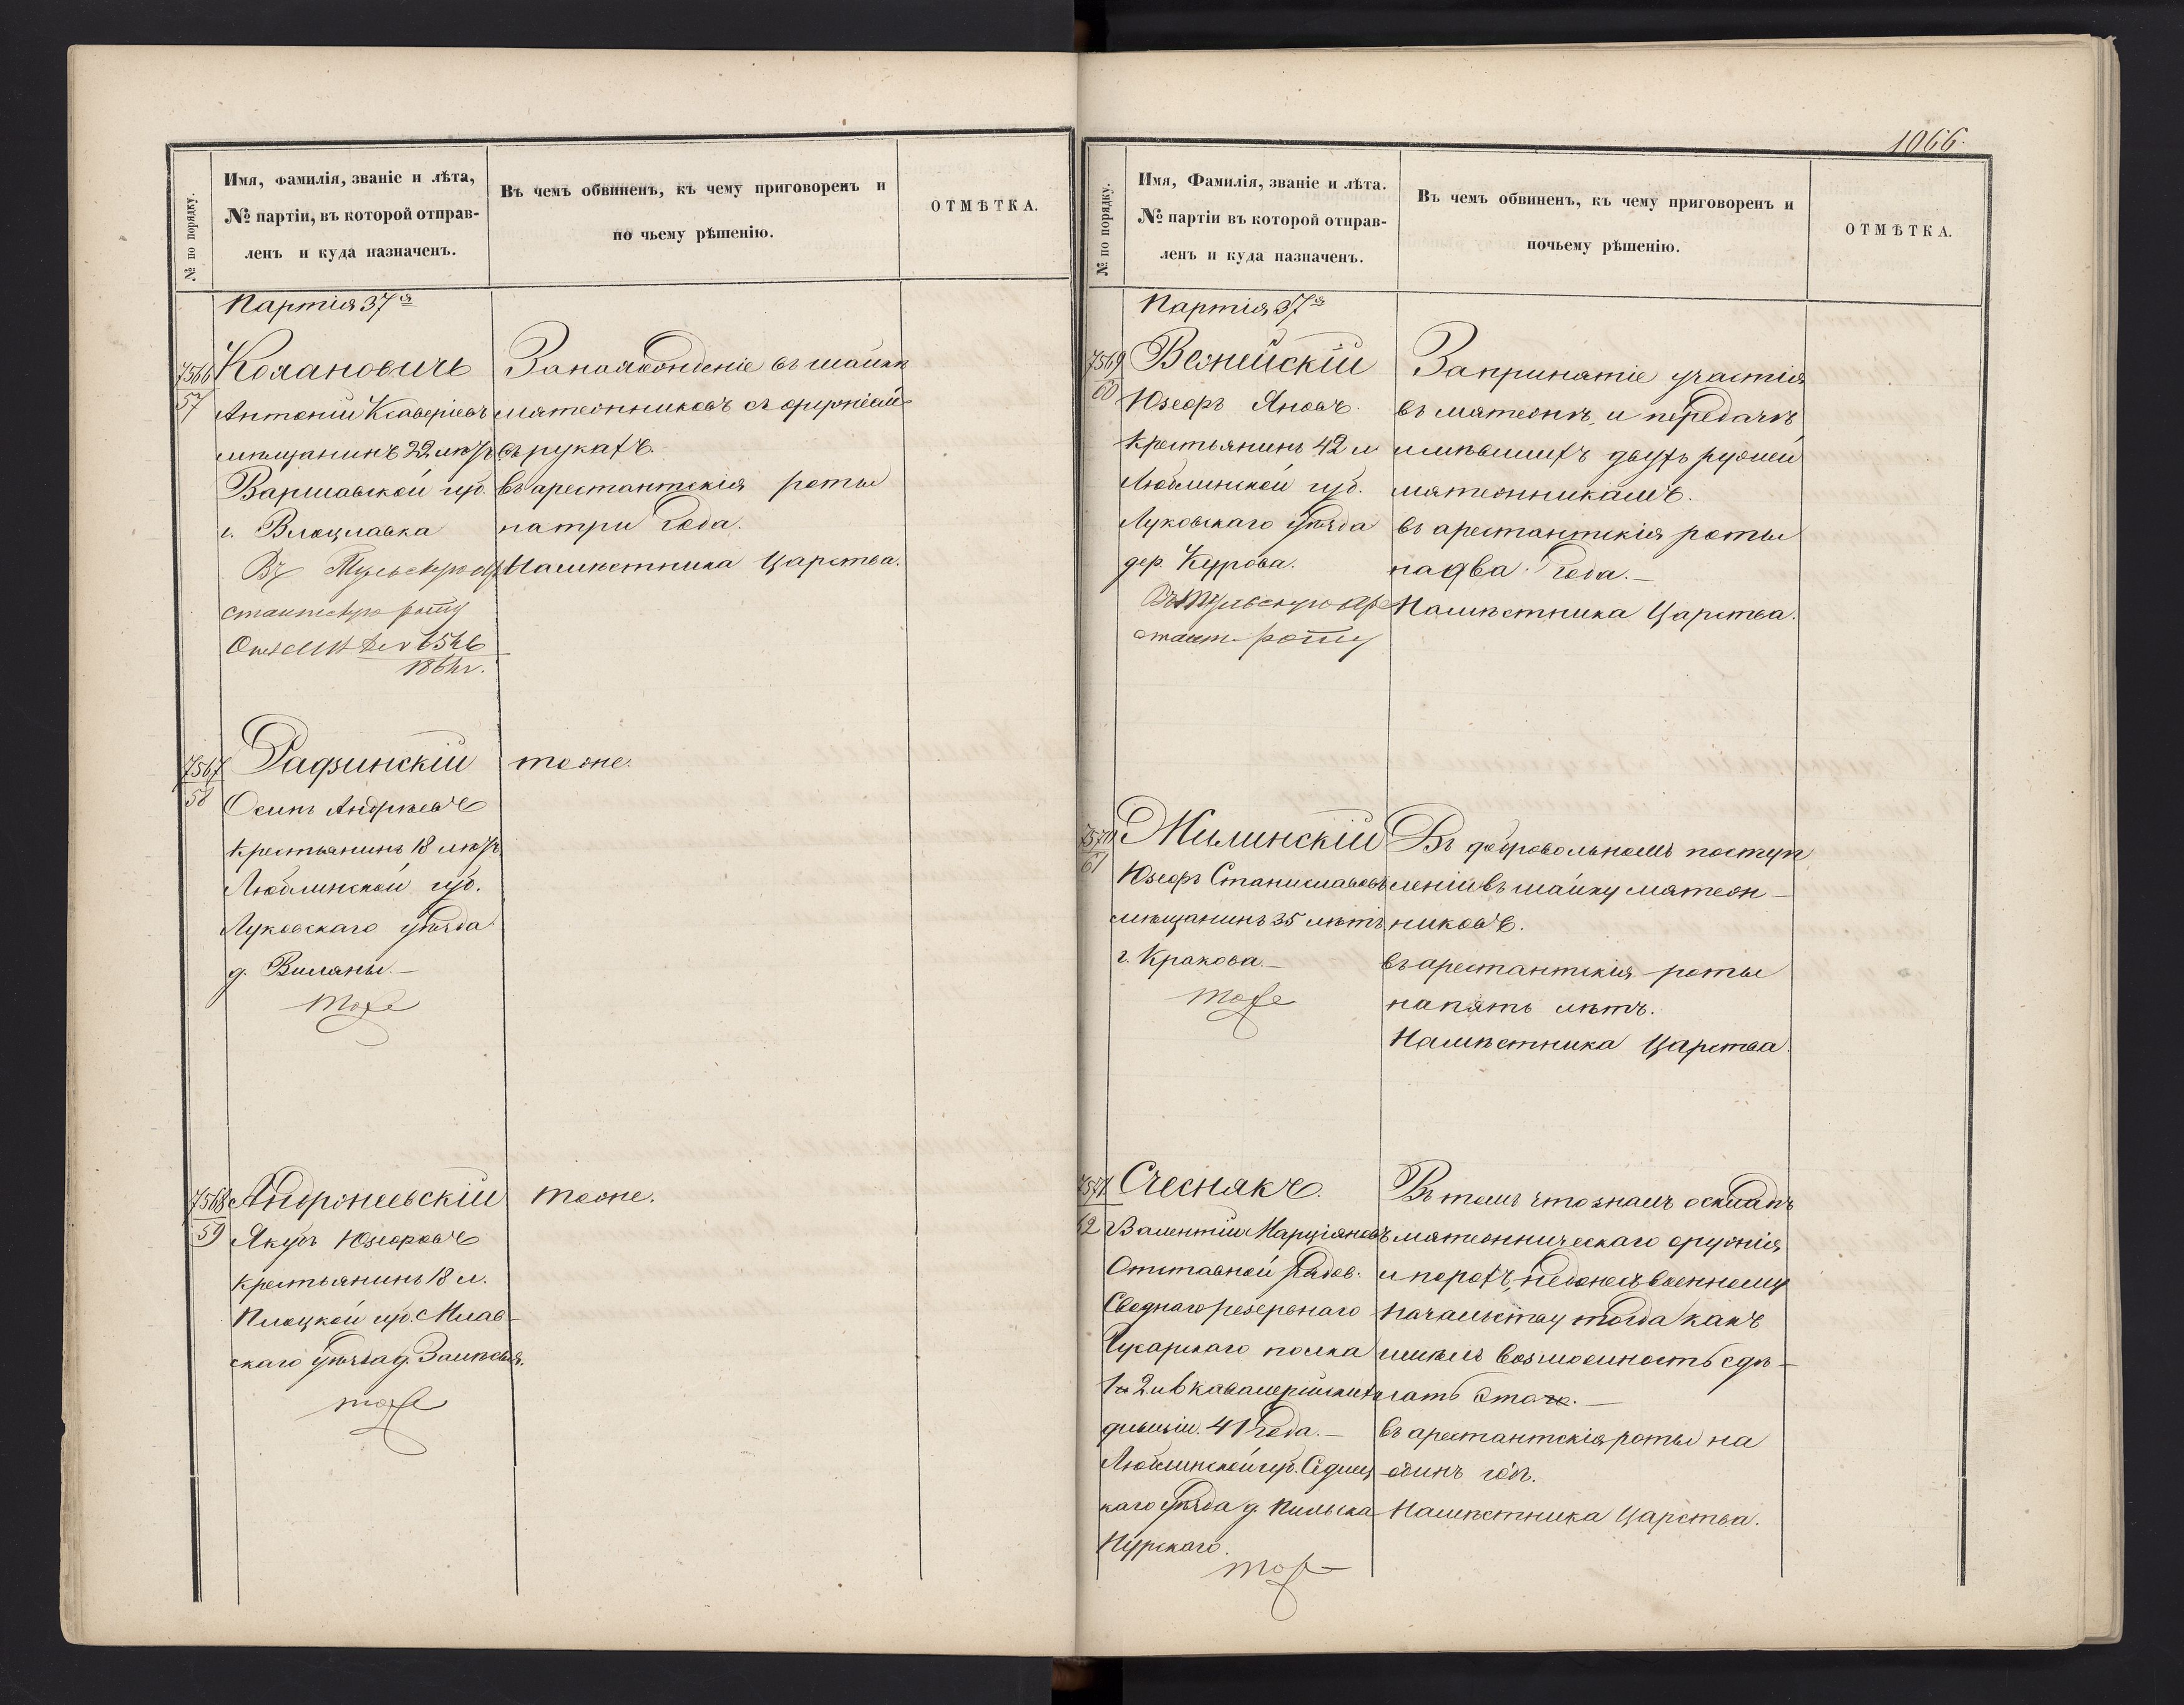 № по порядку.
Имя, фамилія, званіе и лѣта,
№ партіи, въ которой отправ-
ленъ и куда назначенъ.
Въ чемъ обвиненъ, къ чему приговоренъ и
по чьему рѣшенію.
ОТМѢТКА.
Партія 37я
7566
57
Колановичъ
Антоній Ксаверіевъ
мѣщанинъ 22 лѣтъ
Варшавской губ.
г. Влоцлавка
Въ Тульскую аре
стантскую роту
1864 г.
За нахожденіе въ шайкѣ
мятежниковъ съ оружіемъ
въ рукахъ.
въ арестантскія роты
на три года.
Намѣстника Царства.
7567
58
Радзинскій
Осипъ Андреевъ
Крестьянинъ 18 лѣтъ
Люблинской губ.
Луковскаго уѣзда
д. Виляны.—
тоже
тоже.
7568
59
Андржеевскій
Якубъ Юзефовъ
крестьянинъ 18 л.
Плоцкой губ. Млав-
скаго уѣзда д.
тоже
тоже.
1066.
№ по порядку.
Имя, Фамилія, званіе и лѣта.
№ партіи въ которой отправ-
ленъ и куда назначенъ.
Въ чемъ обвиненъ, къ чему приговоренъ и
почьему рѣшенію.
ОТМѢТКА.
Партія 37я
7569
60
Вежейскій
Юзефъ Яновъ.
Крестьянинъ 42 л
Люблинской губ.
Луковскаго уѣзда
дер. Курова.
Въ Тульскую аре
стант. роту
За принятіе участія
въ мятежѣ, и передачѣ
имѣвшихъ двухъ ружей
мятежникамъ.
въ арестантскія роты
на два года.—
Намѣстника Царства.
7570
61
Жилинскій
Юзефъ Станиславовъ
мѣщанинъ 35 лѣтъ
г. Кракова.—
тоже
Въ добровольномъ поступ
леніи въ шайку мятеж-
никовъ.
въ арестантскія роты
на пять лѣтъ.
Намѣстника Царства.
7571
62
Счеснякъ.
Валентій Марціановъ
Отставной рядов.
Своднаго резервнаго
Гусарскаго полка
1й 2й кавалерійскихъ
дивизіи. 41 года.—
Люблинской губ. Седлец
каго уѣзда д. Пильска
Нурскаго.
тоже
Въ томъ что зналъ о складѣ
мятежническаго оружія
и порохѣ, не донесъ военному
начальству тогда какъ
имѣлъ возможность сдѣ-
лать это.—
въ арестантскія роты на
одинъ годъ.
Намѣстника Царства.